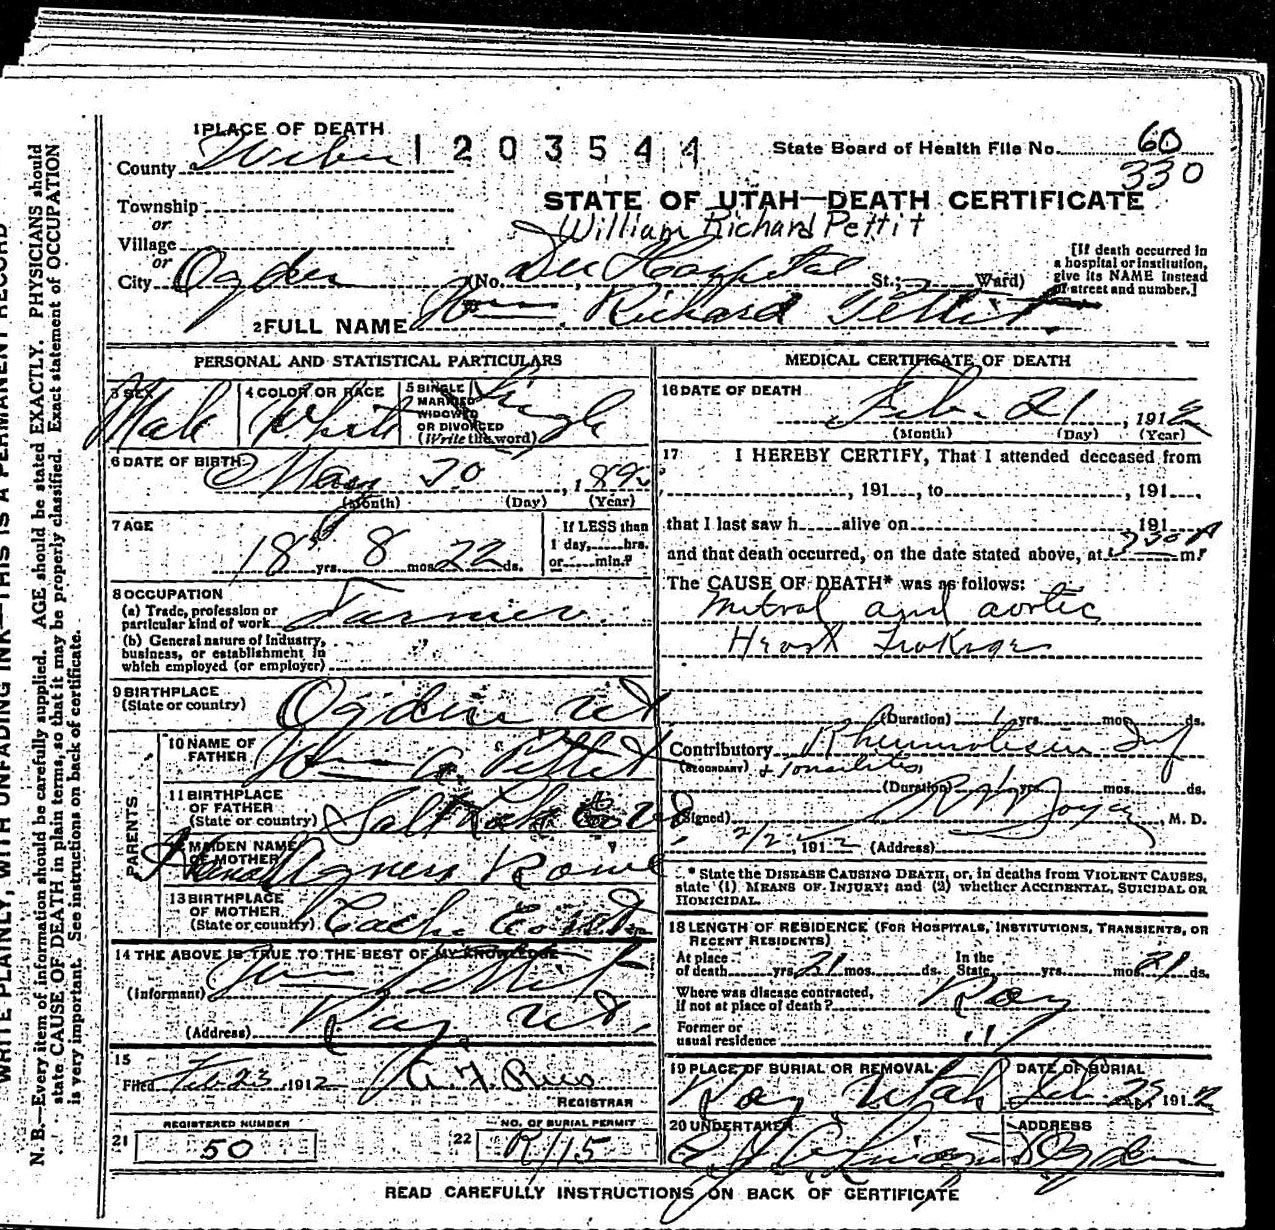 1 PLACE OF DEATH
County Weber 1203544 State Board of Health File No. 60
330
Township
STATE OF UTAH—DEATH CERTIFICATE
or
William Richard Pettit
Village
or
City Ogden (No. Dee Hospital St.; Ward)
[If death occurred in a hospital or institution, give its NAME instead of street and number.]
2 FULL NAME Wm Richard Pettit.
PERSONAL AND STATISTICAL PARTICULARS
3 SEX Male
4 COLOR OR RACE White
5 SINGLE MARRIED WIDOWED OR DIVORCED (Write the word) Single
6 DATE OF BIRTH
May 30, 189
(Month) (Day) (Year)
7 AGE
18 yrs. 8 mos. 22 ds.
If LESS than 1 day, hrs. or min.?
8 OCCUPATION
(a) Trade, profession or particular kind of work Farmer
(b) General nature of industry, business, or establishment in which employed (or employer) "
9 BIRTHPLACE
(State or country) Ogden Ut
PARENTS
10 NAME OF FATHER Pettit
11 BIRTHPLACE OF FATHER
(State or country) Salt Lake Co Ut
12 MAIDEN NAME OF MOTHER Agness Rowe
13 BIRTHPLACE OF MOTHER
(State or country) Cache Co Ut
14 THE ABOVE IS TRUE TO THE BEST OF MY KNOWLEDGE
(Informant) Pettit
(Address) Roy Ut.
15
Filed Feb 23 1912
REGISTRAR
REGISTERED NUMBER
21 50
NO. OF BURIAL PERMIT
22 R/15
MEDICAL CERTIFICATE OF DEATH
16 DATE OF DEATH
Feb. 21, 1912
(Month) (Day) (Year)
17 I HEREBY CERTIFY, That I attended deceased from
, 191 , to , 191
that I last saw h alive on , 191
and that death occurred, on the date stated above, at m.
The CAUSE OF DEATH* was as follows:
Mitral and aortic
Heart
(Duration) 1 yrs. mos. ds.
Contributory Rheumatism Inf
(SECONDARY) + Tonsilitis
(Duration) yrs. mos. ds.
(Signed) , M. D.
, 1912 (Address)
* State the DISEASE CAUSING DEATH, or, in deaths from VIOLENT CAUSES, state (1) MEANS OF INJURY; and (2) whether ACCIDENTAL, SUICIDAL OR HOMICIDAL.
18 LENGTH OF RESIDENCE (FOR HOSPITALS, INSTITUTIONS, TRANSIENTS, OR RECENT RESIDENTS)
At place of death yrs. 21 mos. ds. In the State yrs. mos. 21 ds.
Where was disease contracted, if not at place of death? Roy
Former or usual residence "
19 PLACE OF BURIAL OR REMOVAL
Roy Utah
DATE OF BURIAL
Feb. 23 1912
20 UNDERTAKER
ADDRESS
Ogden
READ CAREFULLY INSTRUCTIONS ON BACK OF CERTIFICATE
WRITE PLAINLY, WITH UNFADING INK—THIS IS A PERMANENT RECORD
N. B.—Every item of information should be carefully supplied. AGE should be stated EXACTLY. PHYSICIANS should
state CAUSE OF DEATH in plain terms, so that it may be properly classified. Exact statement of OCCUPATION
is very important. See instructions on back of certificate.